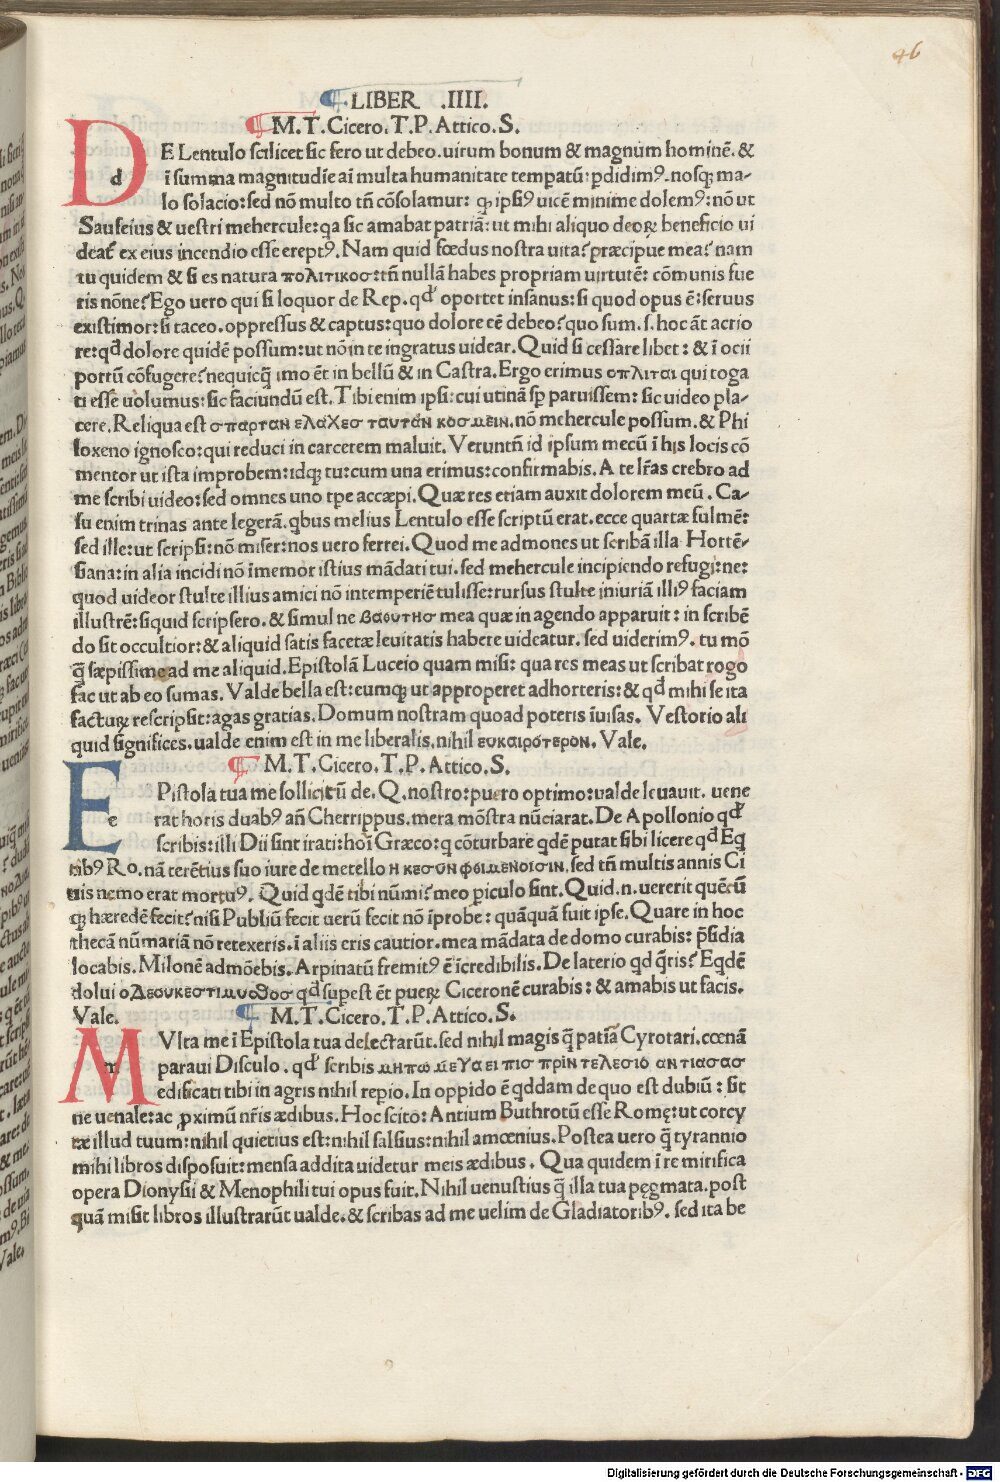 46
¶ LIBER .IIII.
¶ M.T.Cicero.T.P.Attico.S.
DE Lentulo scilicet sic fero ut debeo.uirum bonum & magnum hominē.&
ī summa magnitudīe aīi multa humanitate temperatū:perdidimꝰ.nosqꝫ ma⸗
lo solacio:sed nō multo tñ cōsolamur: ꝙ ipsiꝰ uicē minime dolemꝰ:nō ut
Saufeius & uestri mehercule:qa sic amabat patriā:ut mihi aliquo deoꝝ beneficio ui
deat̄ ex eius incendio esse ereptꝰ.Nam quid fœdus nostra uita?præcipue mea?nam
tu quidem & si es natura πολιτικοσ:tñ nullā habes propriam uirtutē:cōmunis fue
ris nōne?Ego uero qui si loquor de Rep.qd̓ oportet insanus:si quod opus ē:seruus
existimor:si taceo.oppressus & captus:quo dolore eē debeo?quo sum.s.hoc āt acrio
re:qd̓ dolore quidē possum:ut nō in te ingratus uidear.Quid si cessare libet:& ī ocii
portū cōfugere?nequicq̄ imo ēt in bellū & in Castra.Ergo erimus οπλιται qui toga
ti esse uolumus:sic faciundū est.Tibi enim ipsi:cui utinā sp̄ paruissem: sic uideo pla⸗
cere.Reliqua est σπαρταν ελαχεσ ταυταν κοσμειν.nō mehercule possum.& Phi
loxeno ignosco:qui reduci in carcerem maluit.Veruntñ id ipsum mecū ī his locis cō
mentor ut ista improbem:idqꝫ tu:cum una erimus:confirmabis.A te l̄ras crebro ad
me scribi uideo:sed omnes uno tp̄e accæpi.Quæ res etiam auxit dolorem meū.Ca⸗
su enim trinas ante legerā.qbus melius Lentulo esse scriptū erat.ecce quartæ fulmē:
sed ille:ut scripsi:nō miser:nos uero ferrei.Quod me admones ut scribā illa Hortē⸗
siana:in alia incidi nō īmemor istius mādati tui.sed mehercule incipiendo refugi:ne:
quod uideor stulte illius amici nō intemperiē tulisse:rursus stulte iniuriā illiꝰ faciam
illustrē:siquid scripsero.& simul ne βαθυτησ mea quæ in agendo apparuit: in scribē
do sit occultior:& aliquid satis facetæ leuitatis habere uideatur. sed uiderimꝰ. tu mō
q̄ sæpissime ad me aliquid.Epistolā Luceio quam misi: qua res meas ut scribat rogo
fac ut ab eo sumas.Valde bella est:eumqꝫ ut approperet adhorteris:& qd̓ mihi se ita
facturꝝ rescripsit:agas gratias.Domum nostram quoad poteris īuisas. Vestorio ali
quid significes.ualde enim est in me liberalis.nihil ευκαιρότερον.Vale.
¶ M.T.Cicero.T.P.Attico.S.
EPistola tua me sollicitū de.Q.nostro:puero optimo:ualde leuauit. uene
rat horis duabꝰ añ Cherrippus.mera mōstra nūciarat.De Apollonio qd̓
scribis:illi Dii sint irati:hoī Græco:q cōturbare qdē putat sibi licere qd̓ Eq̄
tibꝰ Ro.nā terētius suo iure de metello η κεσυν φθιμενοισιν.sed tñ multis annis Ci
uis nemo erat mortuꝰ. Quid qdē tibi nūmi?meo ꝑiculo sint.Quid.n.uererit quēcū
qꝫ hæredē fecit?nisi Publiū fecit uerū fecit nō īprobe: quāquā fuit ipse.Quare in hoc
thecā nūmariā nō retexeris.ī aliis eris cautior.mea mādata de domo curabis: p̄sidia
locabis.Milonē admōebis.Arpinatū fremitꝰ ē īcredibilis.De laterio qd q̄ris?Eqdē
dolui οΔεουκεστιμυθοσ qd̓ supest ēt pueꝝ Ciceronē curabis: & amabis ut facis.
Vale. ¶ M.T.Cicero.T.P.Attico.S.
MVlta me ī Epistola tua delectarūt.sed nihil magis q̄ patīa Cyrotari.cœnā
paraui Disculo.qd̓ scribis μηπω μεγαειπισ πρὶν τελεσιο αντιασασ
edificati tibi in agris nihil repio.In oppido ē qddam de quo est dubiū: sit
ne uenale:ac ꝓximū nr̄is ædibus.Hoc scito:Antium Buthrotū esse Romę:ut corcy
ræ illud tuum:nihil quietius est:nihil salsius:nihil amœnius.Postea uero q̄ tyrannio
mihi libros disposuit:mensa addita uidetur meis ædibus. Qua quidem ī re mirifica
opera Dionysii & Menophili tui opus fuit.Nihil uenustius q̄ illa tua pęgmata.post
quā misit libros illustrarūt ualde.& scribas ad me uelim de Gladiatoribꝰ. sed ita be
Digitalisierung gefördert durch die Deutsche Forschungsgemeinschaft - DFG